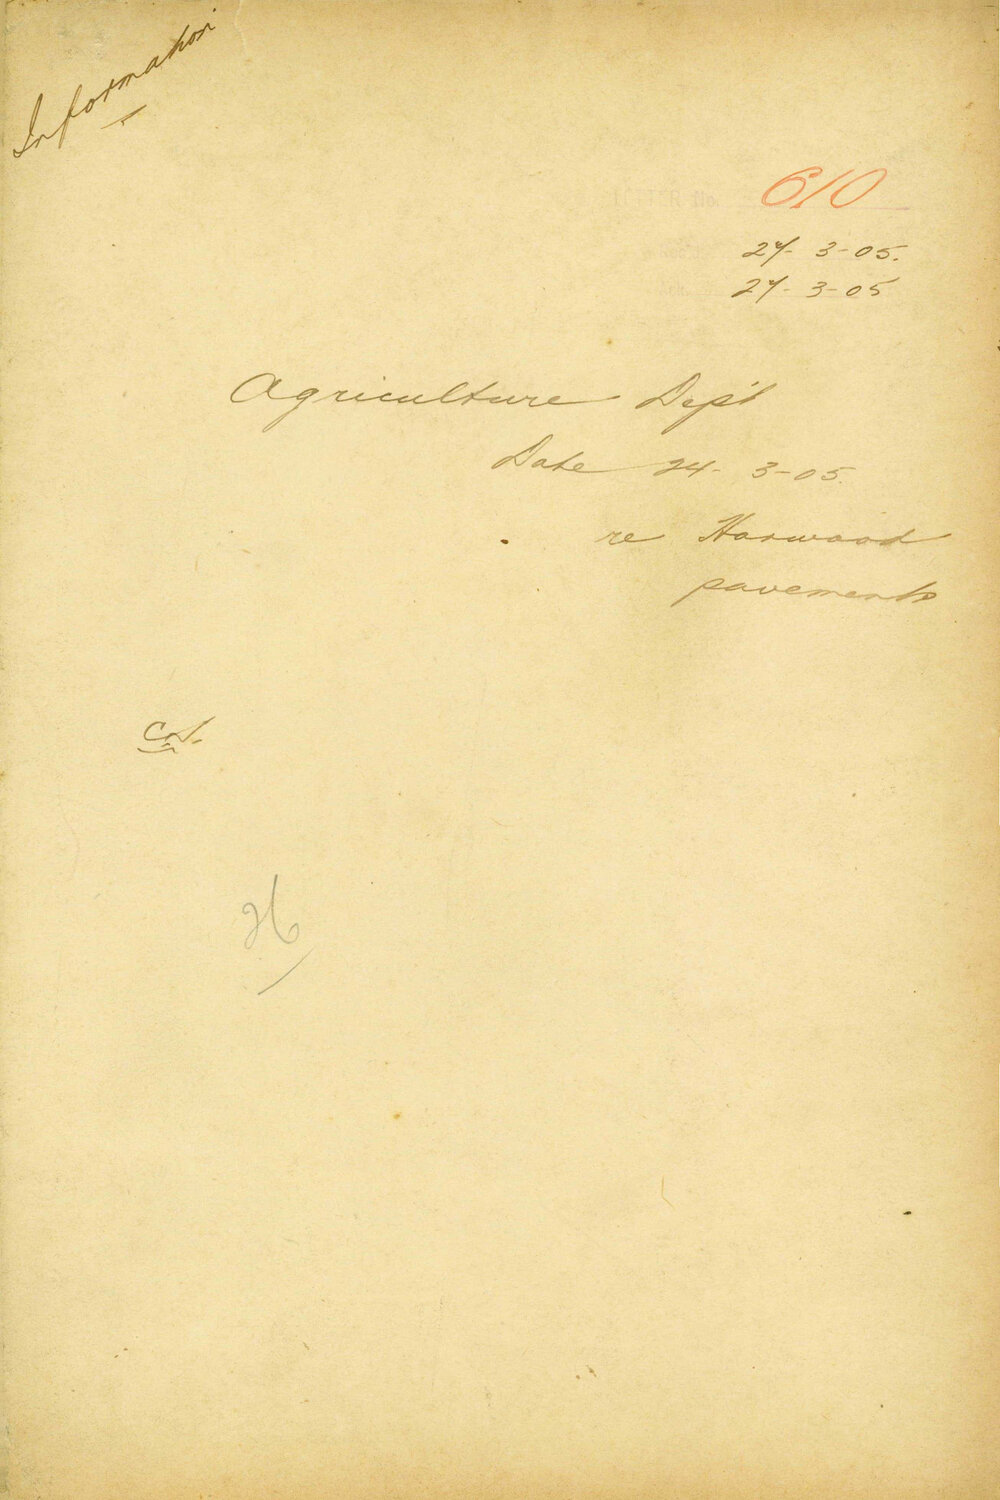 Information
610
27-3-05.
27-3-05
Agriculture Dep't
Date 24-3-05.
re Harwood
pavements
26